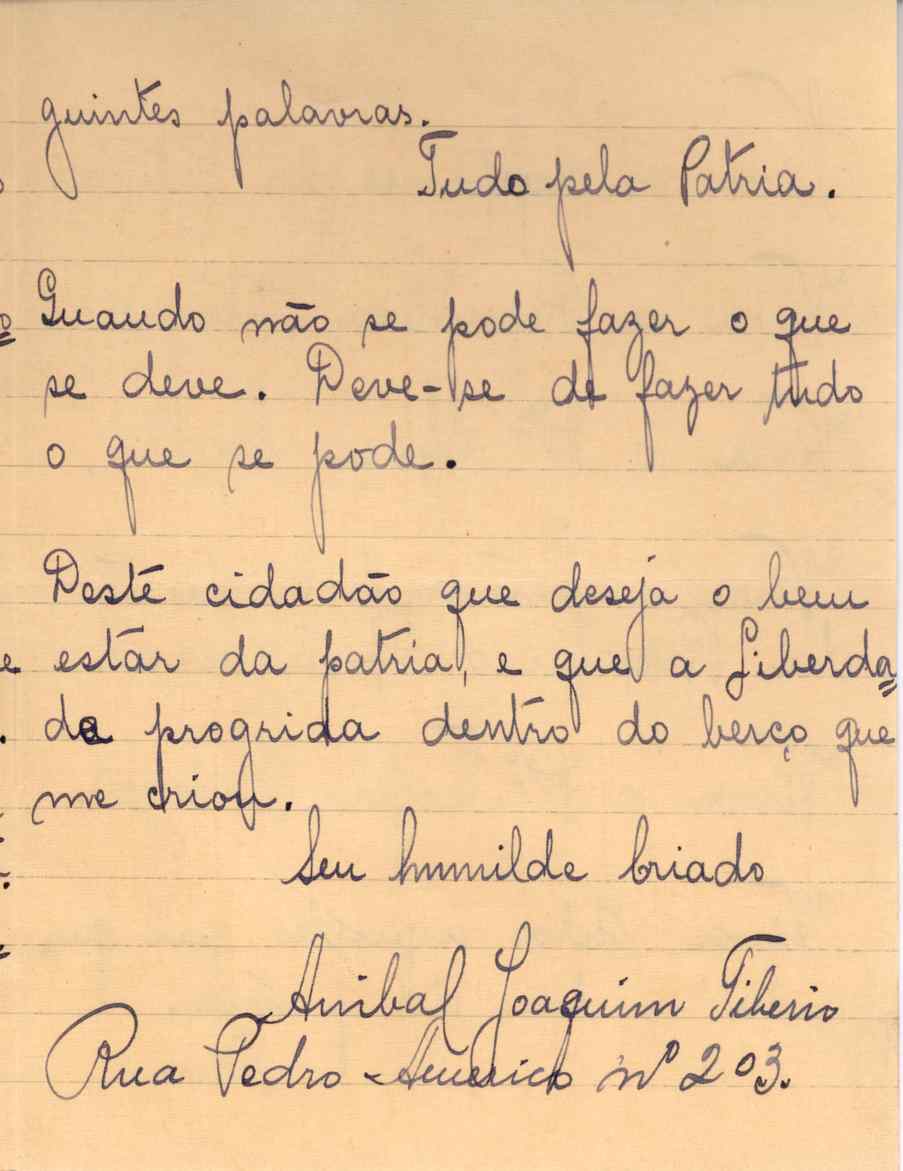 guintes palavras.
Tudo pela Patria.
Quando não se pode fazer o que
se deve. Deve-se de fazer tudo
o que se pode.
Deste cidadão que deseja o bem
estar da patria, e que a Liberda=
de progrida dentro do berço que
me criou.
Seu humilde Criado
Anibal Joaquim Tiberio
Rua Pedro-Americo nº 203.